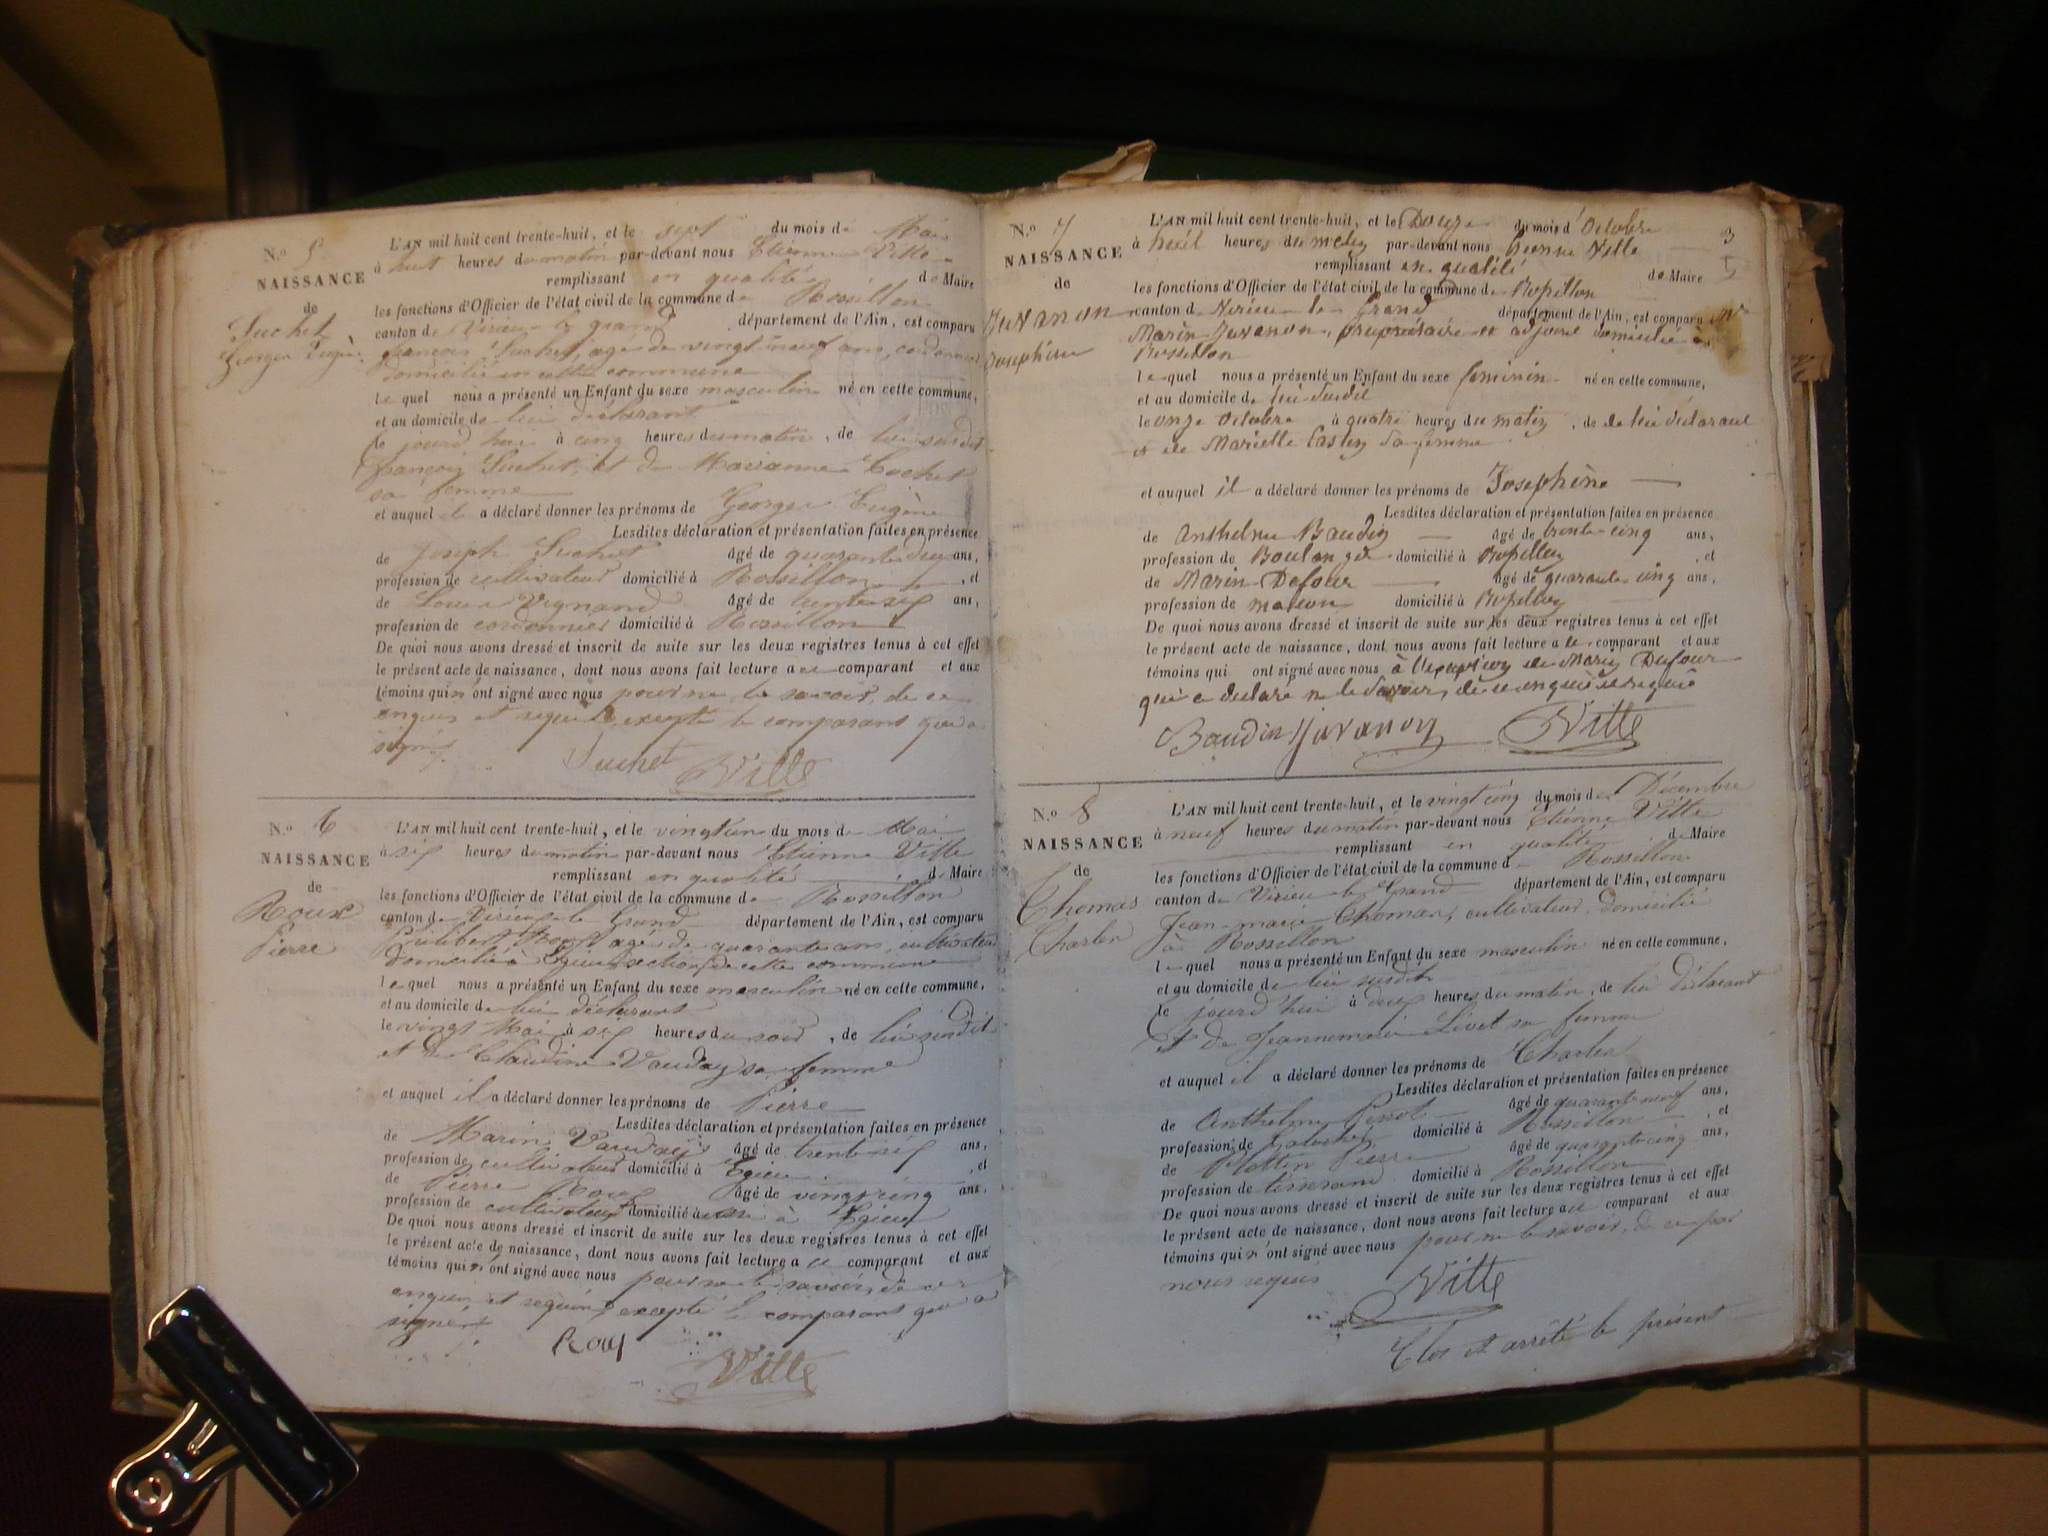 N.o 5
NAISSANCE
de
Suchet
Georges Eugène
L'AN mil huit cent trente-huit, et le sept du mois de Mai
à huit heures du matin par-devant nous Etienne Vitte
remplissant en qualité de Maire
les fonctions d'Officier de l'état civil de la commune de Rossillon
canton de Virieu le grand département de l'Ain, est comparu
françois Suchet, agé de vingt neuf ans, cordonnier
domicilié en cette commune
lequel nous a présenté un Enfant du sexe masculin né en cette commune,
et au domicile de lui déclarant
le jourd'hui à cinq heures du matin, de lui susdit
françois Suchet, et de Marianne Cochet
sa femme
et auquel il a déclaré donner les prénoms de Georges Eugène
Lesdites déclaration et présentation faites en présence
de Joseph Suchet âgé de quarante deux ans,
profession de cultivateur domicilié à Rossillon, et
de Louis Vignand âgé de trente six ans,
profession de cordonnier domicilié à Rossillon
De quoi nous avons dressé et inscrit de suite sur les deux registres tenus à cet effet
le présent acte de naissance, dont nous avons fait lecture a ce comparant et aux
témoins qui n'ont signé avec nous pour ne le savoir, de ce
enquis et requis excepté le comparant qui a
signé
Suchet Vitte
N.o 6
NAISSANCE
de
Roux
Pierre
L'AN mil huit cent trente-huit, et le vingt un du mois de Mai
à six heures du matin par-devant nous Etienne Vitte
remplissant en qualité de Maire
les fonctions d'Officier de l'état civil de la commune de Rossillon
canton de Virieu le Grand département de l'Ain, est comparu
Philibert Roux agé de quarante ans, cultivateur
domicilié à Egieu section de cette commune
lequel nous a présenté un Enfant du sexe masculin né en cette commune,
et au domicile de lui déclarant
le vingt Mai à six heures du soir, de lui susdit
et de Claudine Vauday sa femme
et auquel il a déclaré donner les prénoms de Pierre
Lesdites déclaration et présentation faites en présence
de Marin Vauday âgé de trente six ans,
profession de cultivateur domicilié à Egieu, et
de Pierre Roux âgé de vingt cinq ans,
profession de cultivateur domicilié à Egieu
De quoi nous avons dressé et inscrit de suite sur les deux registres tenus à cet effet
le présent acte de naissance, dont nous avons fait lecture a ce comparant et aux
témoins qui n'ont signé avec nous pour ne le savoir, de ce
enquis et requis excepté le comparant qui a
signé
Roux
Vitte
3
N.o 7
NAISSANCE
de
Juvanon
Josephine
L'AN mil huit cent trente-huit, et le Douze du mois d'Octobre
à huit heures du matin par-devant nous Etienne Vitte
remplissant en qualité de Maire
les fonctions d'Officier de l'état civil de la commune de Rossillon
canton de Virieu le Grand département de l'Ain, est comparu
Marin Juvanon, propriétaire et adjoint domicilié à
Rossillon
lequel nous a présenté un Enfant du sexe feminin né en cette commune,
et au domicile de lui susdit
le onze Octobre à quatre heures du matin, de de lui déclarant
et de Mariette Castin sa femme
et auquel il a déclaré donner les prénoms de Josephine
Lesdites déclaration et présentation faites en présence
de Anthelme Baudin âgé de trente cinq ans,
profession de Boulanger domicilié à Rossillon, et
de Marin Dufour âgé de quarante cinq ans,
profession de maçon domicilié à Rossillon
De quoi nous avons dressé et inscrit de suite sur les deux registres tenus à cet effet
le présent acte de naissance, dont nous avons fait lecture a le comparant et aux
témoins qui ont signé avec nous à l'exception de Marin Dufour
qui a declaré ne le savoir, de ce enquis et requis
Baudin Juvanon Vitte
N.o 8
NAISSANCE
de
Thomas
Charles
L'AN mil huit cent trente-huit, et le vingt cinq du mois de Décembre
à neuf heures du matin par-devant nous Etienne Vitte
remplissant en qualité de Maire
les fonctions d'Officier de l'état civil de la commune de Rossillon
canton de Virieu le Grand département de l'Ain, est comparu
Jean-marie Thomas, cultivateur, domicilié
à Rossillon
lequel nous a présenté un Enfant du sexe masculin né en cette commune,
et au domicile de lui susdit
le jourd'hui à six heures du matin, de lui déclarant
et de Jeannemarie Livet sa femme
et auquel il a déclaré donner les prénoms de Charles
Lesdites déclaration et présentation faites en présence
de Anthelme âgé de quarante neuf ans,
profession de domicilié à Rossillon, et
de Plottin Pierre âgé de quarante cinq ans,
profession de tisserand domicilié à Rossillon
De quoi nous avons dressé et inscrit de suite sur les deux registres tenus à cet effet
le présent acte de naissance, dont nous avons fait lecture a ce comparant et aux
témoins qui n'ont signé avec nous pour ne le savoir, de ce par
nous requis
Vitte
Clos et arrêté le présent